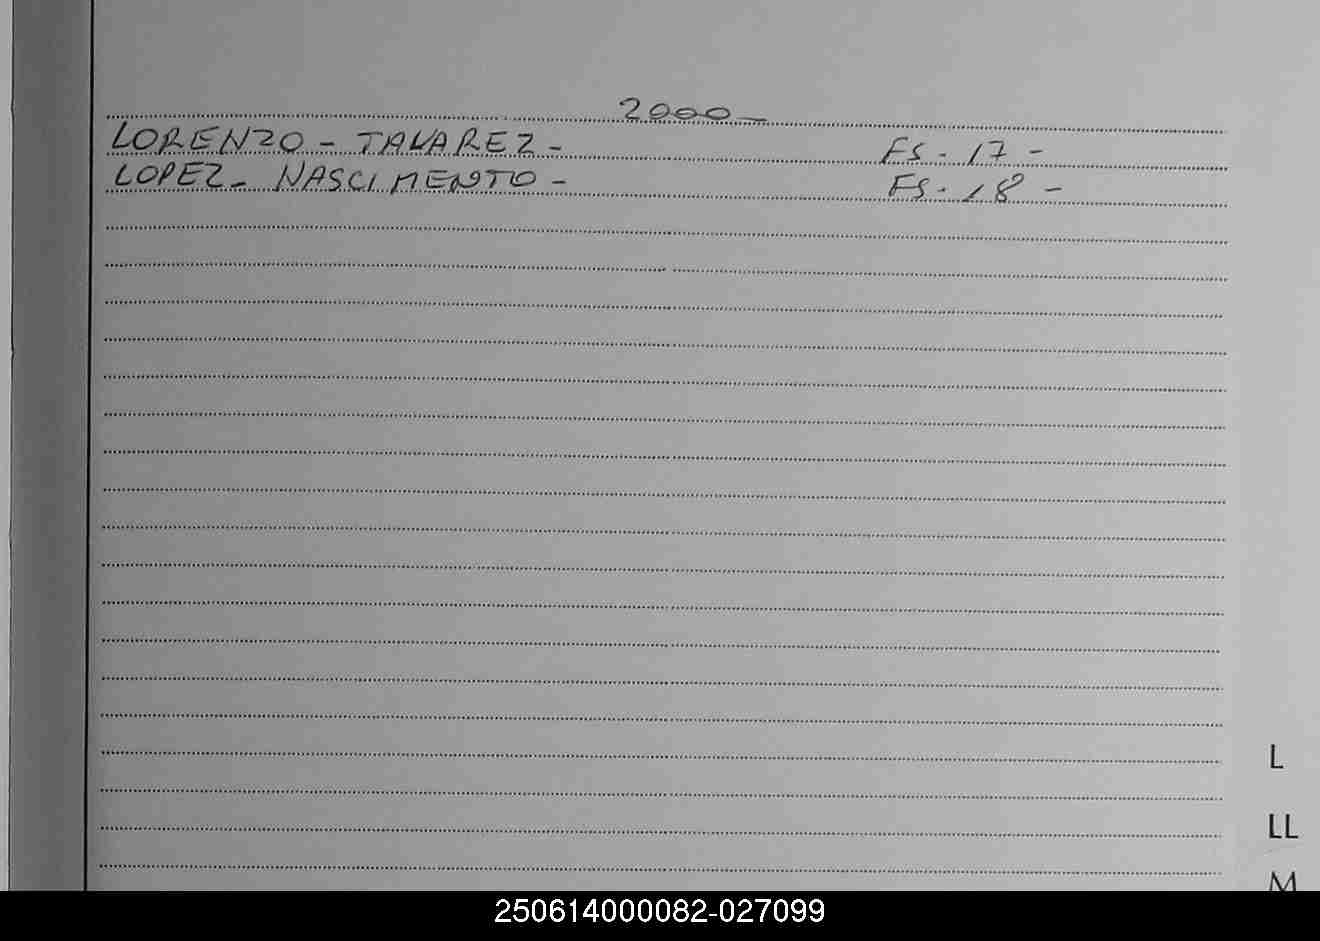 2000-
LORENZO - TAVAREZ - FS. 17 -
LOPEZ - NASCIMENTO - FS. 18 -
L
LL
M
250614000082-027099